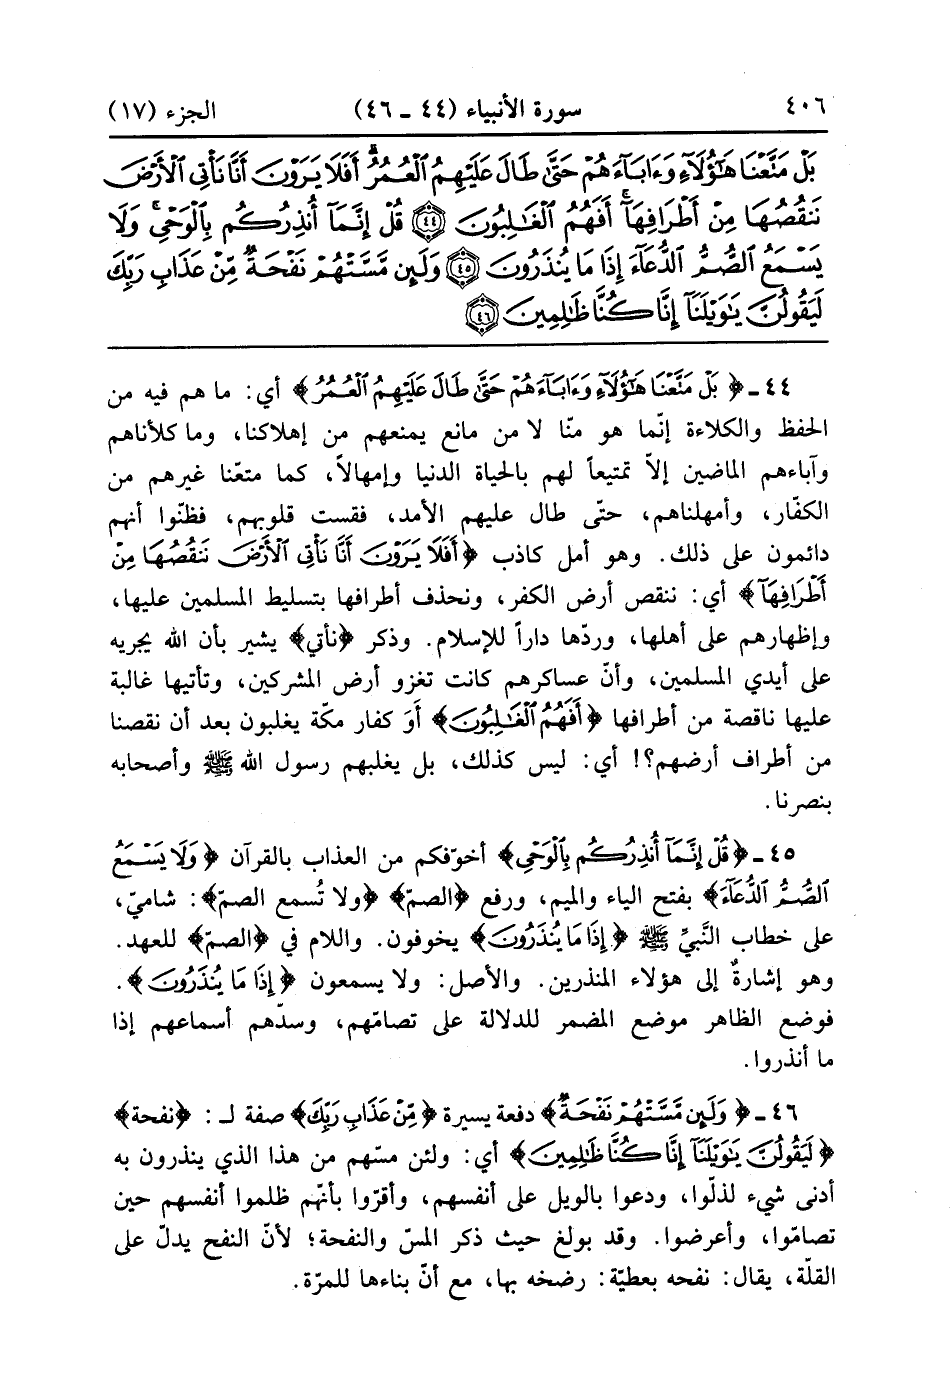 ٤٠٦ سورة الأنبياء (٤٤ - ٤٦) الجزء (١٧)
بَلْ مَتَّعْنَا هَٰٓؤُلَآءِ وَءَابَآءَهُمْ حَتَّىٰ طَالَ عَلَيْهِمُ ٱلْعُمُرُ ۗ أَفَلَا يَرَوْنَ أَنَّا نَأْتِى ٱلْأَرْضَ
نَنقُصُهَا مِنْ أَطْرَافِهَآ ۚ أَفَهُمُ ٱلْغَٰلِبُونَ ﴿٤٤﴾ قُلْ إِنَّمَآ أُنذِرُكُم بِٱلْوَحْىِ ۚ وَلَا
يَسْمَعُ ٱلصُّمُّ ٱلدُّعَآءَ إِذَا مَا يُنذَرُونَ ﴿٤٥﴾ وَلَئِن مَّسَّتْهُمْ نَفْحَةٌ مِّنْ عَذَابِ رَبِّكَ
لَيَقُولُنَّ يَٰوَيْلَنَآ إِنَّا كُنَّا ظَٰلِمِينَ ﴿٤٦﴾
٤٤ - ﴿بَلْ مَتَّعْنَا هَٰٓؤُلَآءِ وَءَابَآءَهُمْ حَتَّىٰ طَالَ عَلَيْهِمُ ٱلْعُمُرُ﴾ أي: ما هم فيه من
الحفظ والكلاءة إنّما هو منّا لا من مانع يمنعهم من إهلاكنا، وما كلأناهم
وآباءهم الماضين إلاّ تمتيعاً لهم بالحياة الدنيا وإمهالاً، كما متعّنا غيرهم من
الكفّار، وأمهلناهم، حتّى طال عليهم الأمد، فقست قلوبهم، فظنّوا أنهم
دائمون على ذلك. وهو أمل كاذب ﴿أَفَلَا يَرَوْنَ أَنَّا نَأْتِى ٱلْأَرْضَ نَنقُصُهَا مِنْ
أَطْرَافِهَآ﴾ أي: ننقص أرض الكفر، ونحذف أطرافها بتسليط المسلمين عليها،
وإظهارهم على أهلها، وردّها داراً للإسلام. وذكر ﴿نأتي﴾ يشير بأن الله يجريه
على أيدي المسلمين، وأنّ عساكرهم كانت تغزو أرض المشركين، وتأتيها غالبة
عليها ناقصة من أطرافها ﴿أَفَهُمُ ٱلْغَٰلِبُونَ﴾ أَوَ كفار مكّة يغلبون بعد أن نقصنا
من أطراف أرضهم؟! أي: ليس كذلك، بل يغلبهم رسول الله ﷺ وأصحابه
بنصرنا.
٤٥ - ﴿قُلْ إِنَّمَآ أُنذِرُكُم بِٱلْوَحْىِ﴾ أخوّفكم من العذاب بالقرآن ﴿وَلَا يَسْمَعُ
ٱلصُّمُّ ٱلدُّعَآءَ﴾ بفتح الياء والميم، ورفع ﴿الصمّ﴾ ﴿ولا تُسمع الصمّ﴾: شاميّ،
على خطاب النَّبيِّ ﷺ ﴿إِذَا مَا يُنذَرُونَ﴾ يخوفون. واللام في ﴿الصمّ﴾ للعهد.
وهو إشارةٌ إلى هؤلاء المنذرين. والأصل: ولا يسمعون ﴿إِذَا مَا يُنذَرُونَ﴾.
فوضع الظاهر موضع المضمر للدلالة على تصامّهم، وسدّهم أسماعهم إذا
ما أنذروا.
٤٦ - ﴿وَلَئِن مَّسَّتْهُمْ نَفْحَةٌ﴾ دفعة يسيرة ﴿مِّنْ عَذَابِ رَبِّكَ﴾ صفة لـ : ﴿نفحة﴾
﴿لَيَقُولُنَّ يَٰوَيْلَنَآ إِنَّا كُنَّا ظَٰلِمِينَ﴾ أي: ولئن مسّهم من هذا الذي ينذرون به
أدنى شيء لذلّوا، ودعوا بالويل على أنفسهم، وأقرّوا بأنّهم ظلموا أنفسهم حين
تصامّوا، وأعرضوا. وقد بولغ حيث ذكر المسّ والنفحة؛ لأنّ النفح يدلّ على
القلّة، يقال: نفحه بعطيّة: رضخه بها، مع أنّ بناءها للمرّة.